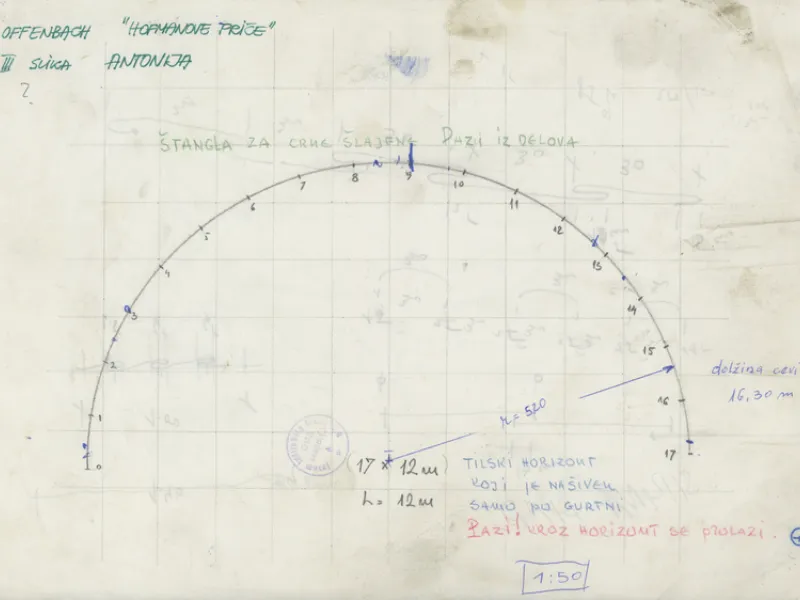 OFFENBACH "HOFMANOVE PRIČE"
III SLIKA ANTONIJA
?
ŠTANGLA ZA CRNE ŠLAJFNE PAZI IZ DELOVA
0
1
2
3
4
5
6
7
8
9
10
11
12
13
14
15
16
17
dolžina cevi
16,30 m
r = 520
(17 x 12 m) TILSKI HORIZONT
KOJI JE NAŠIVEN
h = 12 m SAMO PO GURTNI
PAZI! KROZ HORIZONT SE PROLAZI.
1:50